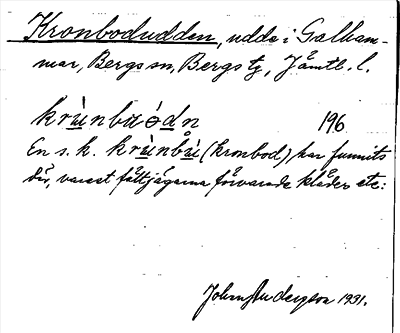 Kronbodudden, udde i Galham-
mar, Bergs sn, Bergs tg, Jämtl. l.
krùnbuódn 196
En s. k. krùnbù (kronbod) har funnits
där, varest fältjägarna förvarade kläder etc:
John Anderzon 1931.